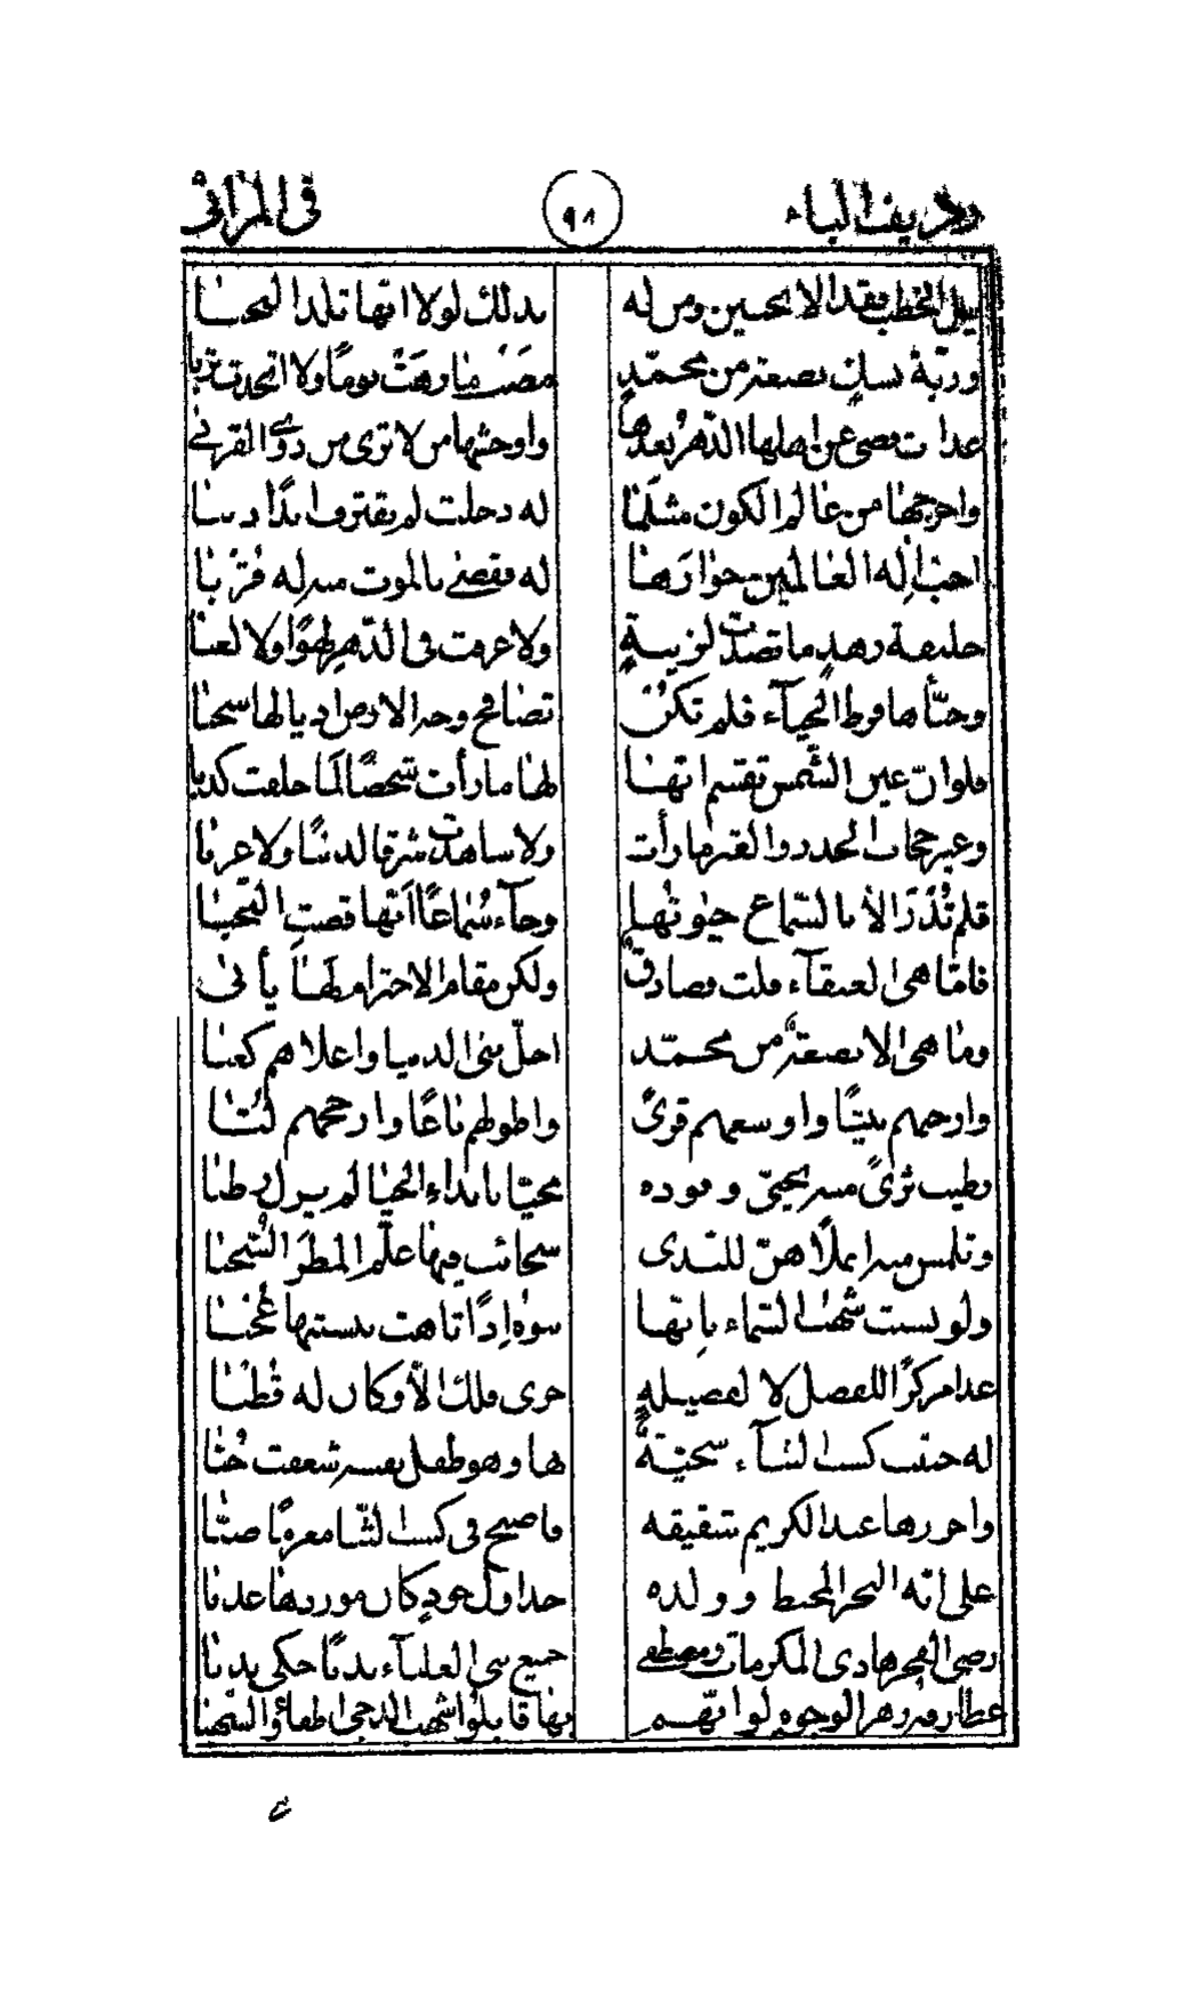 رديف الباء ٩٨ في المراثي
بفقد الا محسين ومن له بذلك لولا انها تلد
وربّة من محمّد مضت ما وهت يوما ولا اتخذت تربا
غدات مضى عن اهلها الدّهر بعدها واوحشها من لا ترى من ذوي القربى
واخرجها من عالم الكون مثلما له دخلت لم يقترف ابدًا ذنبا
احبّ إله العالمين جوارها له فقضى بالموت منه له قربا
زهدٍ ما تصدّت لزينةٍ ولا عرفت في الدّهر لهوًا ولا لعبا
وحيّاها فرط الحيآء فلم تكن تصافح وجه الارض اذيالها سحبا
فلو انّ عين الشّمس تقسم انها لها ما رأت شخصًا لما حلفت كذبا
وعن حجاب الخدر والقبر ما رأت ولا شاهدت شرقا لدنيا ولا غربا
فلم تُدْرَ الا بالسّماع حيوتها وجآء سماعًا انّها قضت النّحبا
فامّا هي العنقآء قلت فصادقٌ ولكن مقام الاحترام لها يأبى
وما هي الا بضعةٌ من محمّد اجلّ بني الدنيا واعلاهم كعبا
وارحبهم بيتًا واوسعهم قرىً واطولهم باعًا وارجحهم لُبّا
بطيب ثرىً منه يحيّى وفوده محيّا بانداء الحيا لم يزل رطبا
وتلمس منه انملًا هنّ للندى سحائب فيها علّم المطر السّحبا
ولو نسبت شهب السّماء بانّها بنوه إذًا تاهت بنسبتها عجبا
غدا مركزًا للفضل لا لفضيلةٍ حوى فلك الّا وكان له قُطبا
له حبّب كسب الثنآء سجيّةٌ بها وهو طفل نفسه شغفت حُبّا
واحرزها عبد الكريم شقيقه فاصبح في كسب الثّنا مغرمًا صبّا
على انّه البحر المحيط وولده جداول جودٍ كان موردها عذبا
رضى الفخر هادي المكرمات ومصطفى جميع بني العليآء ندبًا حكى ندبا
زهر الوجوه لو انّهم بها قابلوا شهب الدجى اطفاؤا الشّهبا